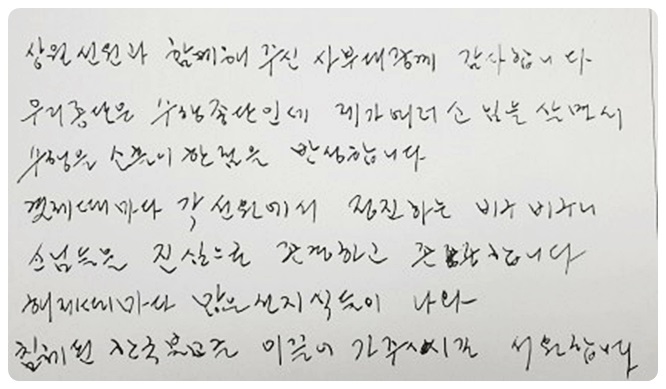 상월선원과 함께해 주신 사부대중께 감사합니다
우리종단은 수행종단인데 제가여러 소임을 살면서
수행을 소홀이한점을 반성합니다
결제때마다 각 선원에서 정진하는 비구 비구니
스님들을 진심으로 존경하고 존중합니다
해제때마다 많은 선지식들이 나와
침체된 한국불교를 이끌어 가주시길 서원합니다